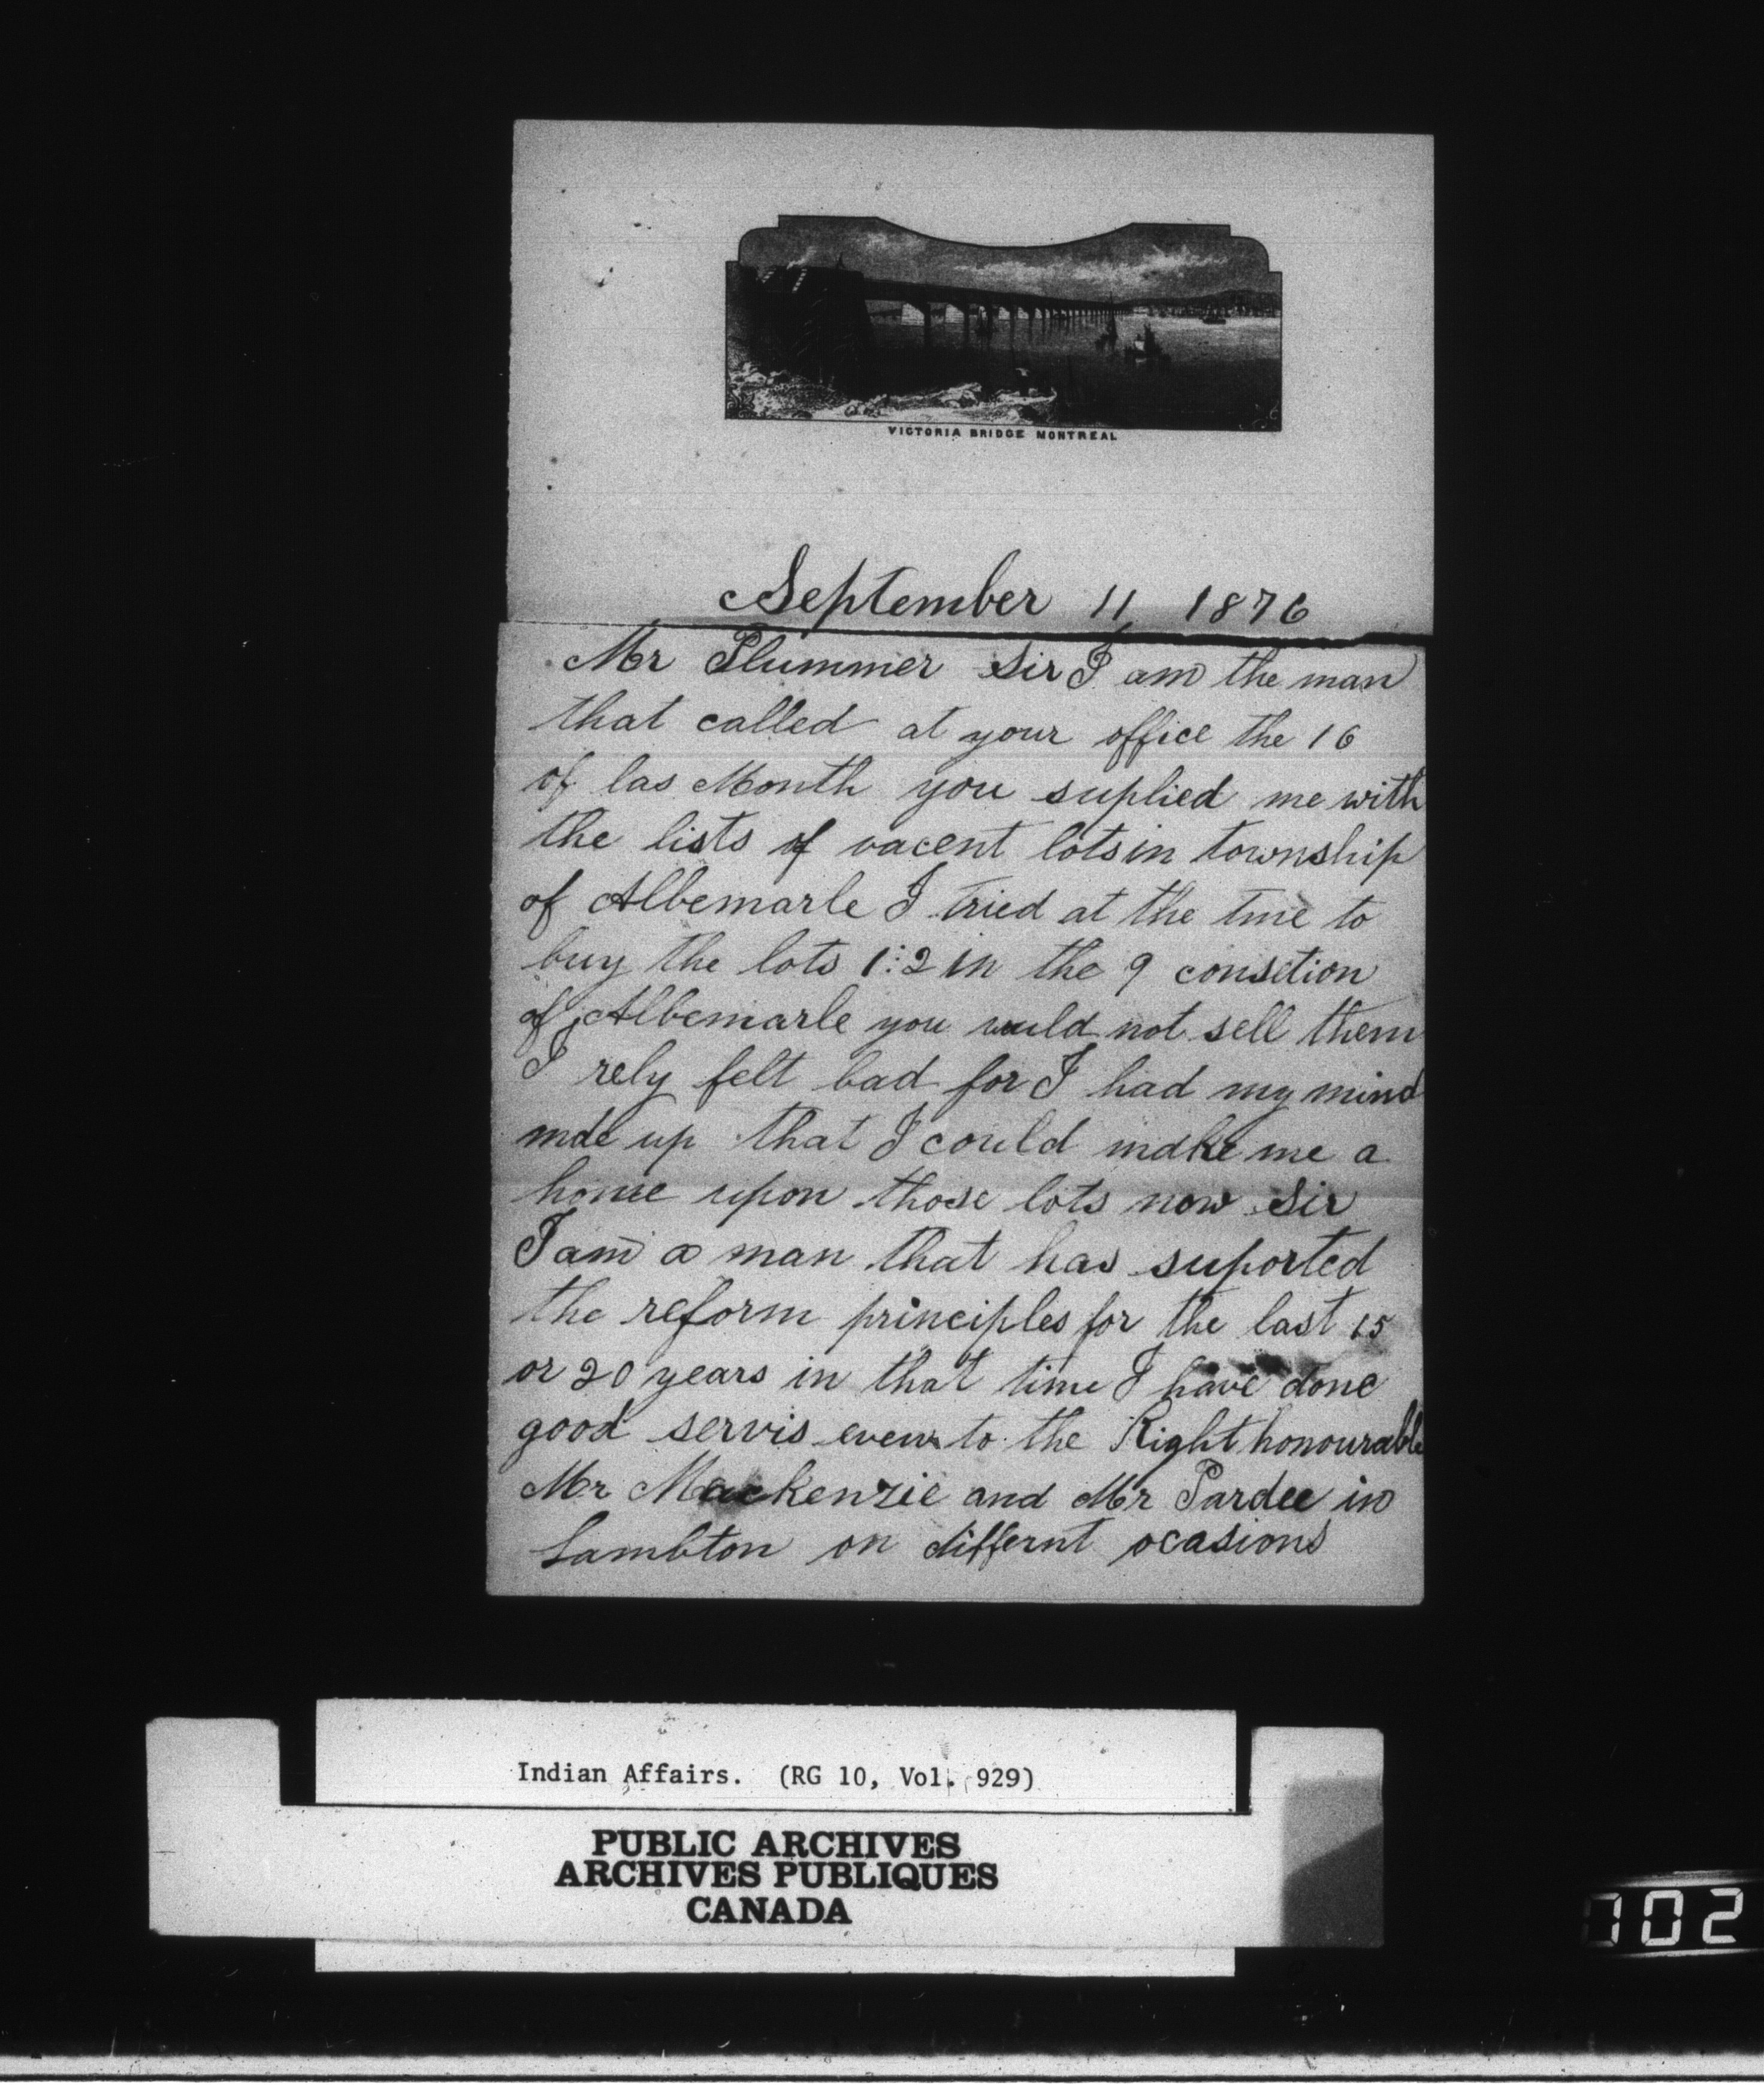 VICTORIA BRIDGE MONTREAL
September 11, 1876
Mr Plummer Sir I am the man
that called at your office the 16
of las Month you suplied me with
the lists of vacent lots in township
of Albemarle I tried at the tme to
buy the lots 1:2 in the 9 consetion
of Albemarle you would not sell them
I rely felt bad for I had my mind
mde up that I could make me a
home upon those lots now Sir
I am a man that has suported
the reform principles for the last 15
or 20 years in that time I have done
good servis even to the Right honourable
Mr Mackenzie and Mr Pardee in
Lambton on differnt ocasions
Indian Affairs. (RG 10, Vol. 929)
PUBLIC ARCHIVES
ARCHIVES PUBLIQUES
CANADA
702